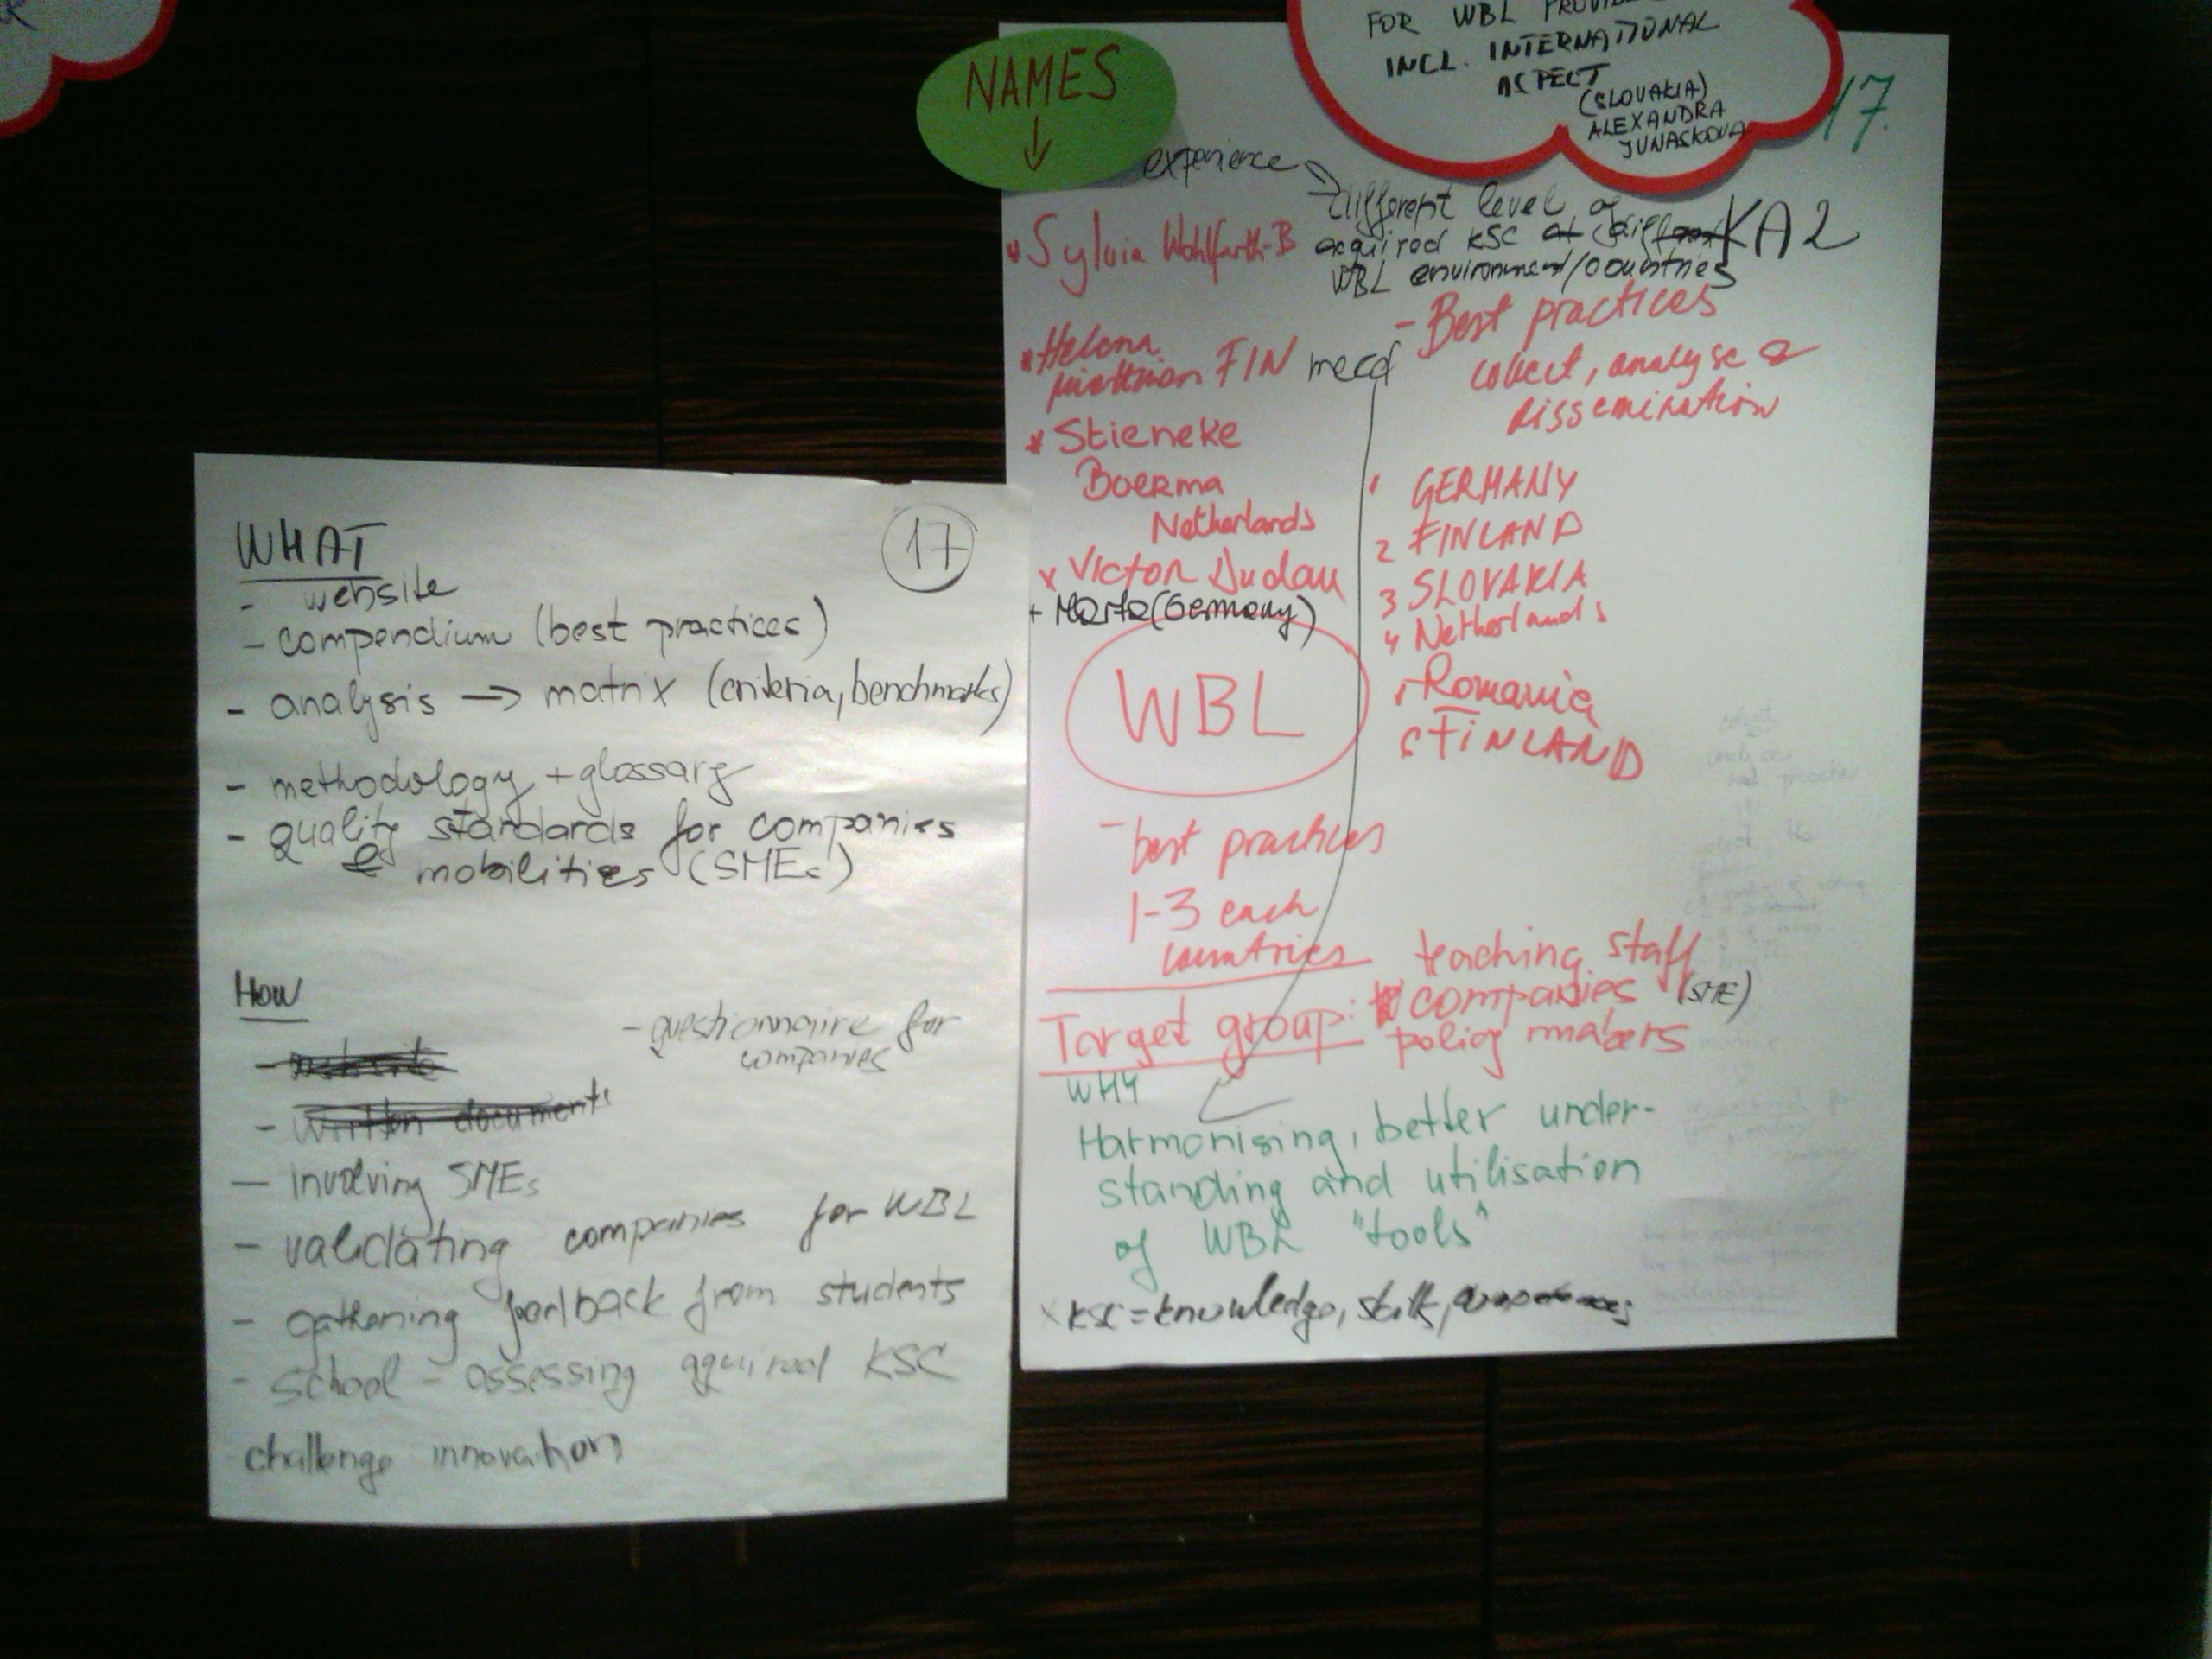 WHAT
17
- website
- compendium (best practices)
- analysis → matrix (criteria, benchmarks)
- methodology + glossary
- quality standards for companies
& mobilities (SMEs)
HOW
- questionnaire for
companies
- website
- written documents
- involving SMEs
- validating companies for WBL
- gathering feedback from students
- school - assessing aquired KSC
challenge innovation
NAMES
↓
FOR WBL
INCL. INTERNATIONAL
ASPECT
(SLOVAKIA)
ALEXANDRA
JUNASKOVA
17.
experience → different level of
acquired KSC at
WBL environment/countries
KA2
* Sylvia Wohlfarth-B
* Helena
FIN
need
- Best practices
collect, analyse &
dissemination
* Stieneke
Boerma
Netherlands
x Victor Dudau
+ Marta (Germany)
1 GERMANY
2 FINLAND
3 SLOVAKIA
4 Netherlands
Romania
FINLAND
WBL
- best practices
1-3 each
countries
Target group:
teaching staff
companies (SME)
policy makers
WHY
Harmonising, better under-
standing and utilisation
of WBL "tools"
x KSC = knowledge, skills,